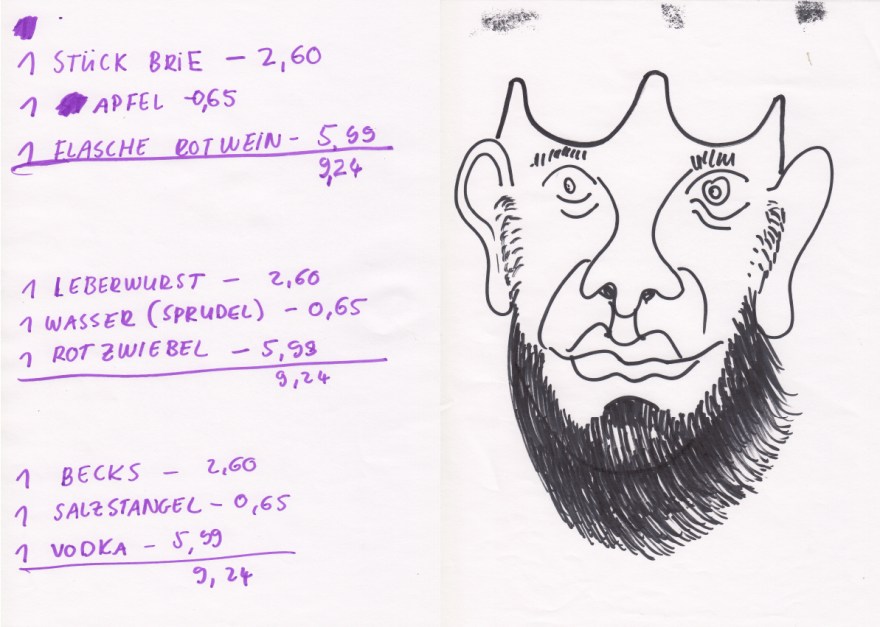 1 STÜCK BRIE – 2,60
1 APFEL -0,65
1 FLASCHE ROTWEIN - 5,99
9,24
1 LEBERWURST – 2,60
1 WASSER (SPRUDEL) – 0,65
1 ROTZWIEBEL – 5,99
9,24
1 BECKS – 2,60
1 SALZSTANGEL – 0,65
1 VODKA – 5,99
9,24